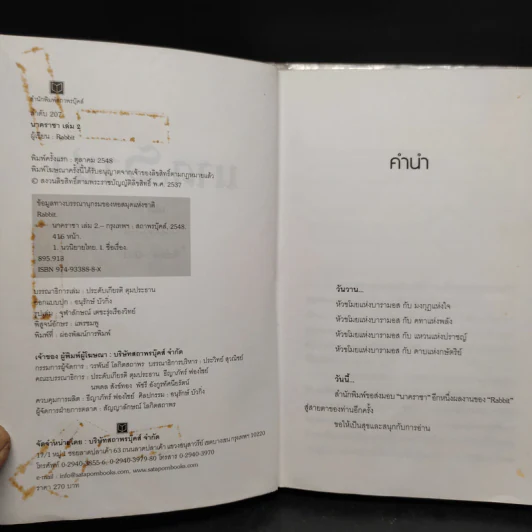 สำนักพิมพ์สถาพรบุ๊คส์
ลำดับ 207
นาคราชา เล่ม ๒
ผู้เขียน : Rabbit
พิมพ์ครั้งแรก : ตุลาคม 2548
พิมพ์โฆษณาครั้งนี้ได้รับอนุญาตจากเจ้าของลิขสิทธิ์ตามกฎหมายแล้ว
© สงวนลิขสิทธิ์ตามพระราชบัญญัติลิขสิทธิ์ พ.ศ. 2537
ข้อมูลทางบรรณานุกรมของหอสมุดแห่งชาติ
Rabbit.
นาคราชา เล่ม 2.-- กรุงเทพฯ : สถาพรบุ๊คส์, 2548.
416 หน้า.
1. นวนิยายไทย. I. ชื่อเรื่อง.
895.913
ISBN 974-93388-8-X
บรรณาธิการเล่ม : ประดับเกียรติ ตุมประธาน
ออกแบบปก : อนุรักษ์ บัวกิ่ง
รูปเล่ม : จุฬาลักษณ์ เตชะรุ่งเรืองวิทย์
พิสูจน์อักษร : แพรชมพู
พิมพ์ที่ : ฟองพัฒน์การพิมพ์
เจ้าของ ผู้พิมพ์ผู้โฆษณา : บริษัทสถาพรบุ๊คส์ จำกัด
กรรมการผู้จัดการ : วรพันธ์ โลกิตสถาพร บรรณาธิการบริหาร : ประวิทย์ สุวณิชย์
คณะบรรณาธิการ : ประดับเกียรติ ตุมประธาน
ควบคุมการผลิต : ศิลปกรรม : อนุรักษ์ บัวกิ่ง
ผู้จัดการฝ่ายการตลาด : สัญญาลักษณ์ โลกิตสถาพร
จัดจำหน่ายโดย : บริษัทสถาพรบุ๊คส์ จำกัด
17/1 หมู่ 5 ซอยลาดปลาเค้า 63 ถนนลาดปลาเค้า แขวงอนุสาวรีย์ เขตบางเขน กรุงเทพฯ 10220
ราคา 270 บาท
คำนำ
วันวาน...
หัวขโมยแห่งบารามอส กับ มงกุฎแห่งใจ
หัวขโมยแห่งบารามอส กับ คทาแห่งพลัง
หัวขโมยแห่งบารามอส กับ แหวนแห่งปราชญ์
หัวขโมยแห่งบารามอส กับ ดาบแห่งกษัตริย์
วันนี้...
สำนักพิมพ์ขอส่งมอบ "นาคราชา" อีกหนึ่งผลงานของ "Rabbit"
สู่สายตาของท่านอีกครั้ง
ขอให้เป็นสุขและสนุกกับการอ่าน